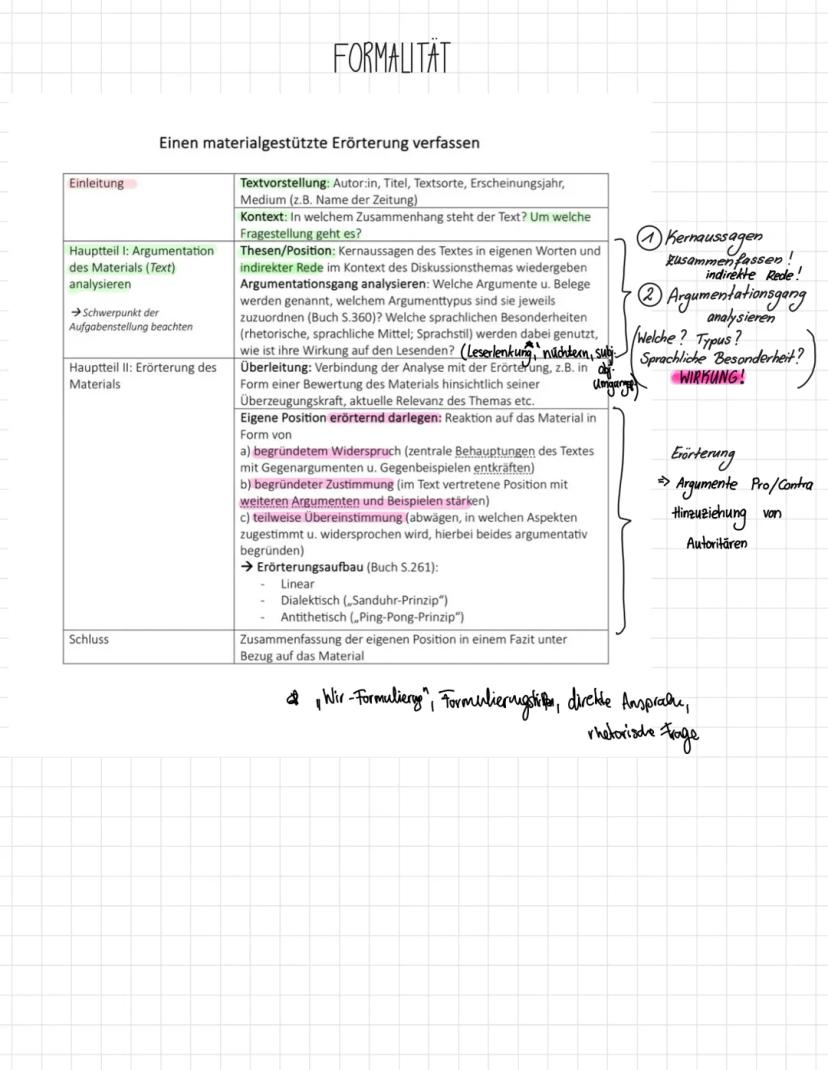 FORMALITÄT
Einen materialgestützte Erörterung verfassen
Einleitung
Textvorstellung: Autor:in, Titel, Textsorte, Erscheinungsjahr,
Medium (z.B. Name der Zeitung)
Kontext: In welchem Zusammenhang steht der Text? Um welche
Fragestellung geht es?
Hauptteil I: Argumentation
des Materials (Text)
analysieren
→ Schwerpunkt der
Aufgabenstellung beachten
Thesen/Position: Kernaussagen des Textes in eigenen Worten und
indirekter Rede im Kontext des Diskussionsthemas wiedergeben
Argumentationsgang analysieren: Welche Argumente u. Belege
werden genannt, welchem Argumenttypus sind sie jeweils
zuzuordnen (Buch S.360)? Welche sprachlichen Besonderheiten
(rhetorische, sprachliche Mittel; Sprachstil) werden dabei genutzt,
wie ist ihre Wirkung auf den Lesenden? (Leserlenkung, nüchtern, subj.
obj.
① Kernaussagen
zusammenfassen!
indirekte Rede!
② Argumentationsgang
analysieren
(Welche? Typus?
Sprachliche Besonderheit?
WIRKUNG!)
Hauptteil II: Erörterung des
Materials
Überleitung: Verbindung der Analyse mit der Erörterung, z.B. in
Form einer Bewertung des Materials hinsichtlich seiner
Überzeugungskraft, aktuelle Relevanz des Themas etc.
Eigene Position erörternd darlegen: Reaktion auf das Material in
Form von
a) begründetem Widerspruch (zentrale Behauptungen des Textes
mit Gegenargumenten u. Gegenbeispielen entkräften)
b) begründeter Zustimmung (im Text vertretene Position mit
weiteren Argumenten und Beispielen stärken)
c) teilweise Übereinstimmung (abwägen, in welchen Aspekten
zugestimmt u. widersprochen wird, hierbei beides argumentativ
begründen)
→ Erörterungsaufbau (Buch S.261):
- Linear
- Dialektisch („Sanduhr-Prinzip“)
- Antithetisch („Ping-Pong-Prinzip“)
Erörterung
=> Argumente Pro/Contra
Hinzuziehung von
Autoritären
Schluss
Zusammenfassung der eigenen Position in einem Fazit unter
Bezug auf das Material
direkte Ansprache,
rhetorische Frage